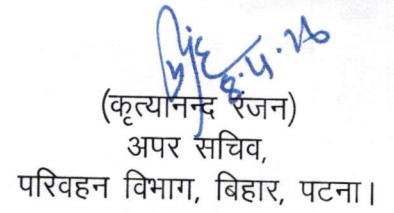 8.4.26
(कृत्यानन्द रंजन)
अपर सचिव,
परिवहन विभाग, बिहार, पटना।